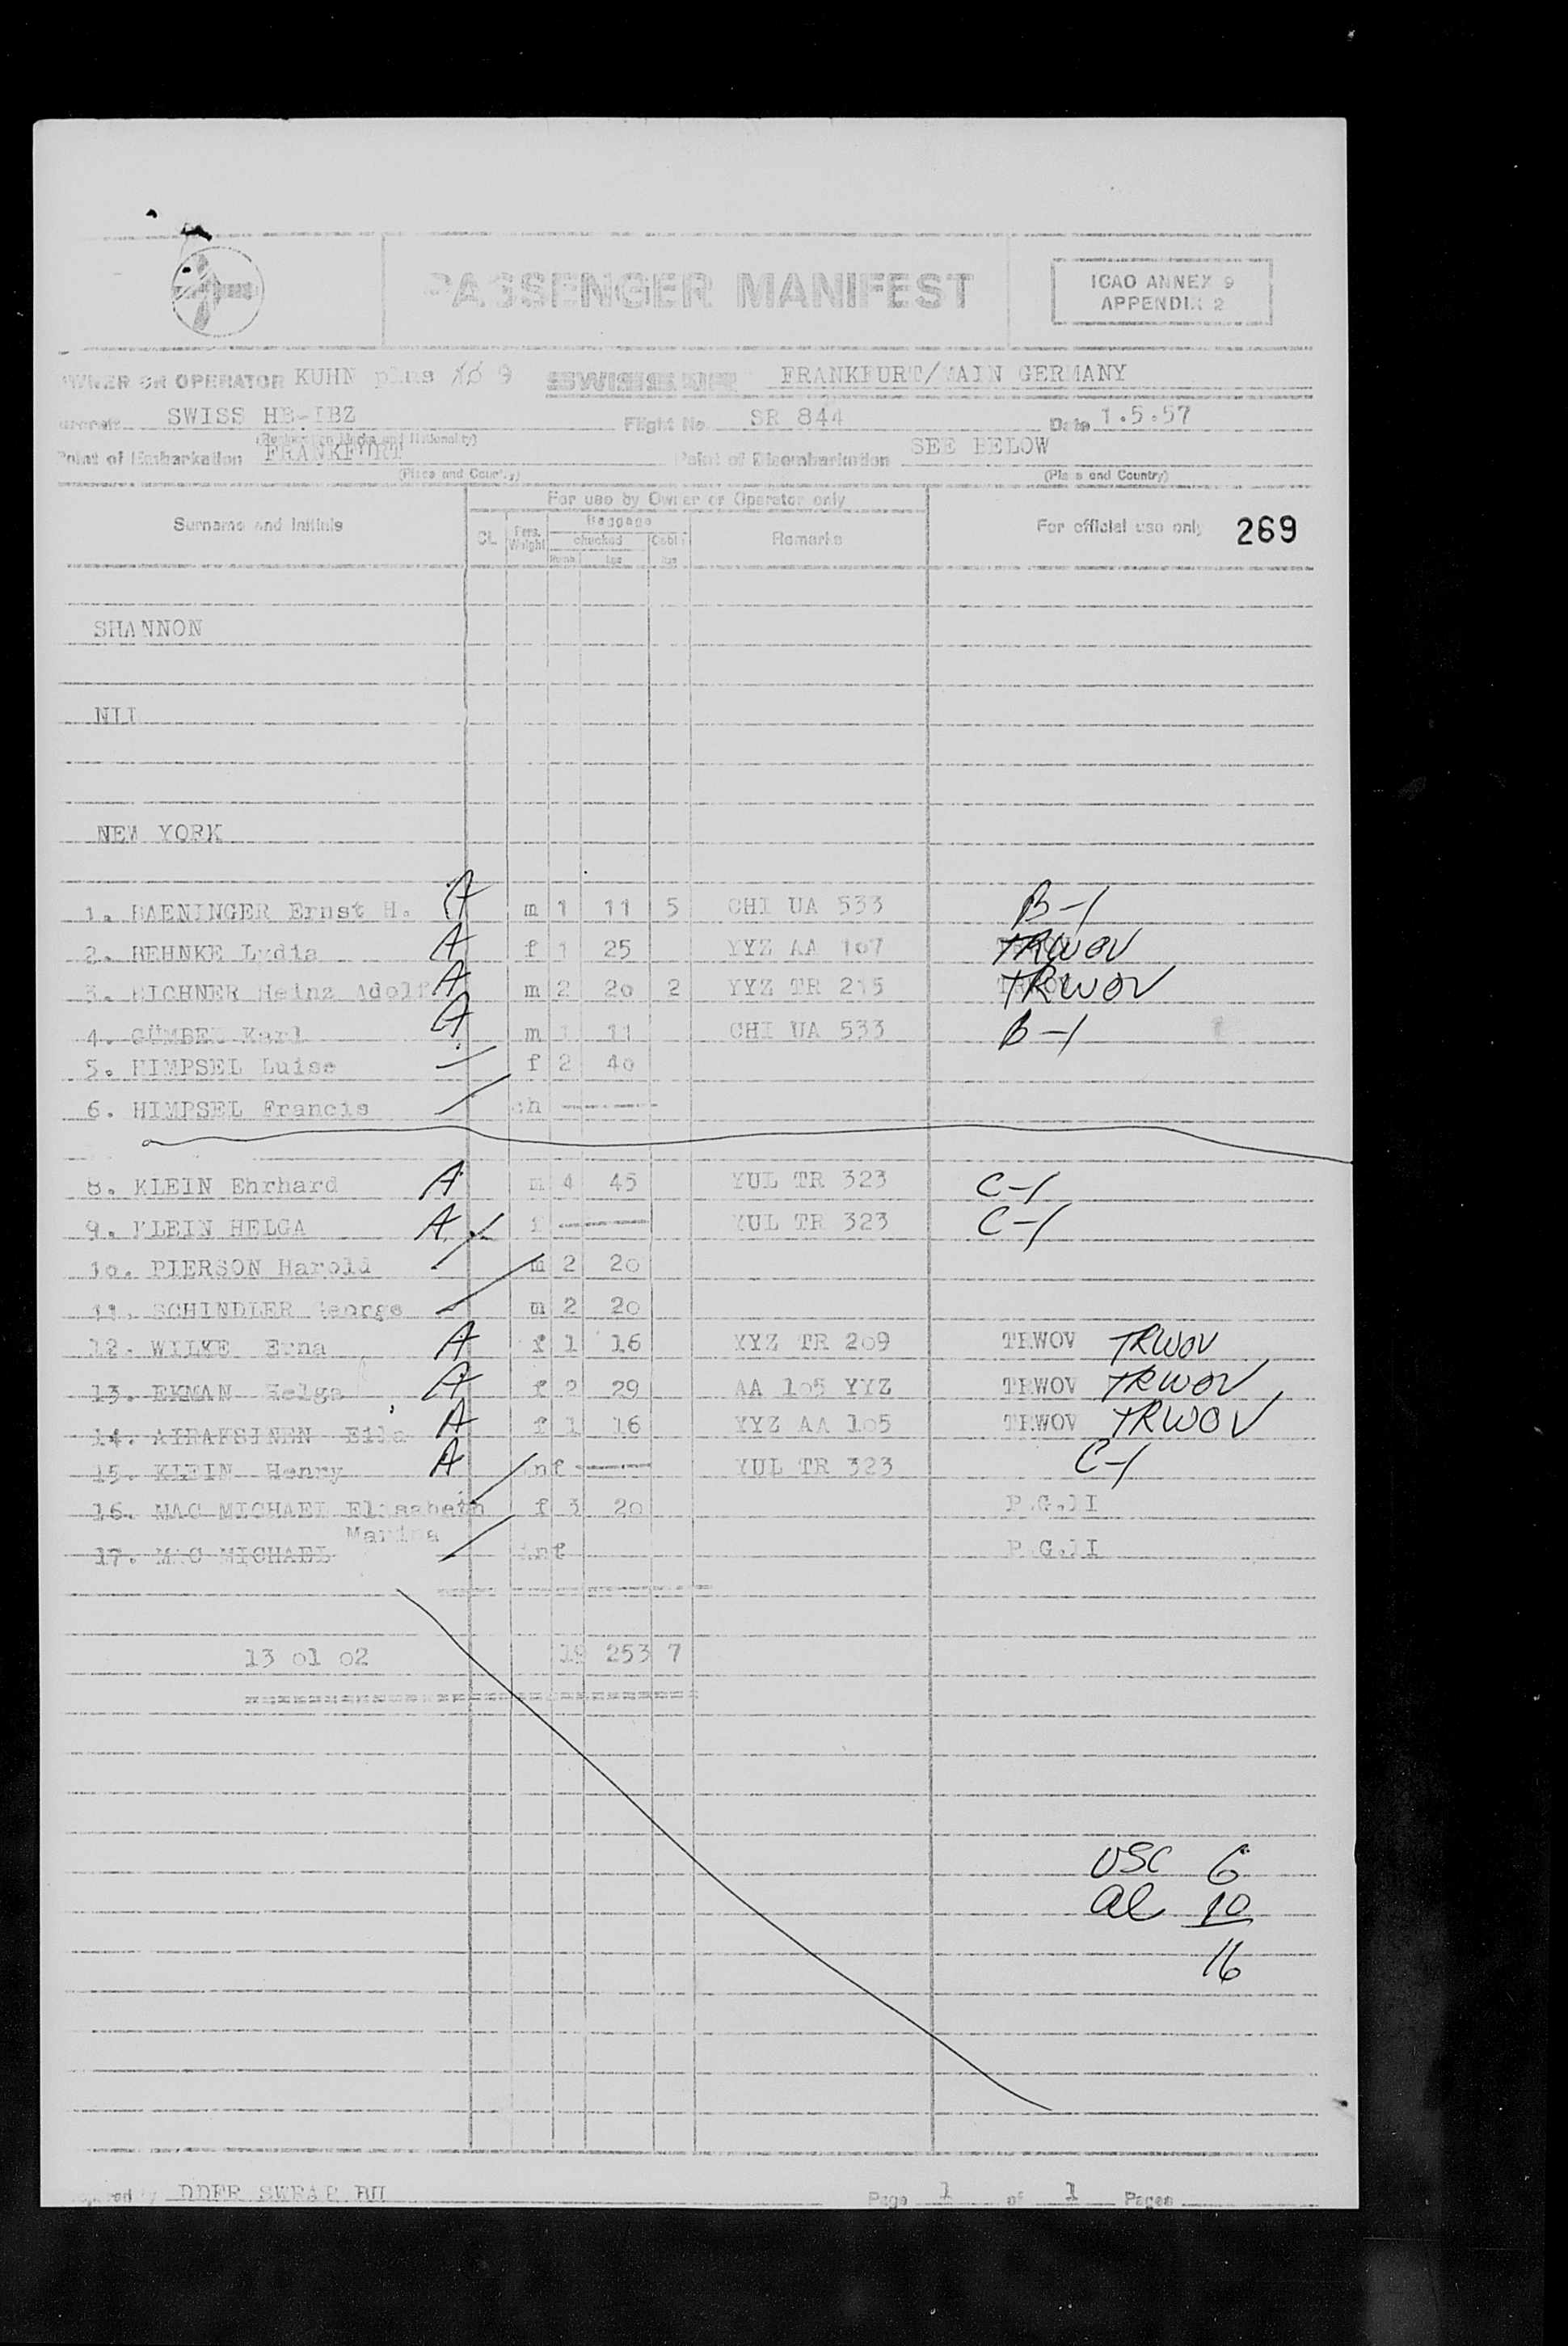 PASSENGER MANIFEST
ICAO ANNEX 9
APPENDIX 2
OWNER OR OPERATOR KUHN plus 9 SWISSAIR FRANKFURT/MAIN GERMANY
Aircraft SWISS HB-IBZ Flight No. SR 844 Date 1.5.57
(Registration Marks and Nationality)
Point of Embarkation FRANKFURT Point of Disembarkation SEE BELOW
(Place and Country) (Place and Country)
For use by Owner or Operator only
Surname and Initials CL Pers. Weight Baggage checked Remarks For official use only 269
SHANNON
NIL
NEW YORK
1. BAENINGER Ernst H. A m 1 11 5 CHI UA 533 B-1
2. BEHNKE Lydia A f 1 25 YYZ AA 107 TRWOV
3. EICHNER Heinz Adolf A m 2 20 2 YYZ TR 215 TRWOV
4. GÜMBEL Karl A m 1 11 CHI UA 533 B-1
5. HIMPSEL Luise f 2 40
6. HIMPSEL Francis ch -----
8. KLEIN Ehrhard A m 4 45 YUL TR 323 C-1
9. KLEIN HELGA A f ----- YUL TR 323 C-1
10. PIERSON Harold m 2 20
11. SCHINDLER George m 2 20
12. WILKE Erna A f 1 16 YYZ TR 209 TRWOV TRWOV
13. EKMAN Helga A f 2 29 AA 105 YYZ TRWOV TRWOV
14. AIRAKSINEN Eila A f 1 16 YYZ AA 105 TRWOV TRWOV
15. KLEIN Henry A inf ----- YUL TR 323 C-1
16. MAC MICHAEL Elisabeth f 3 20 P.G.II
Marina
17. MAC MICHAEL inf P.G.II
13 01 02 19 253 7
USC 6
al 10
16
DDFR SWRAP BU Page 1 of 1 Pages